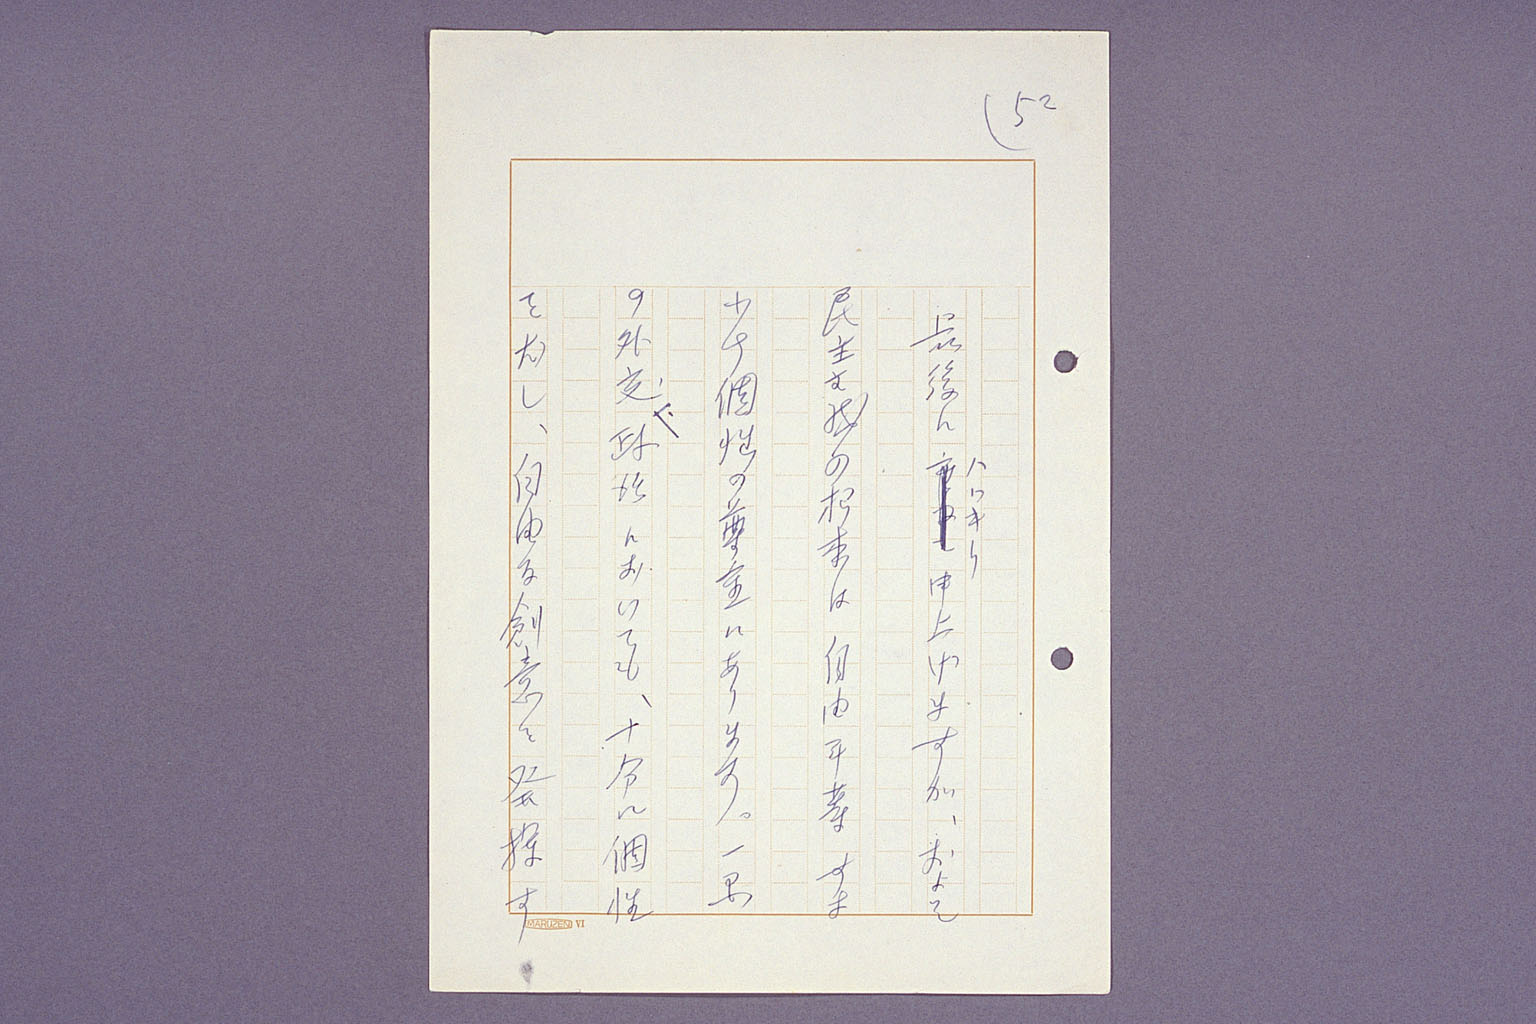 52
最後にハッキリ申上げますが、およそ
民主主義の根本は自由平等すな
わち個性の尊重にあります。一国
の外交や政治においても、十分に個性
を尢し、自由な創意を発揮す
MARUZEN VI